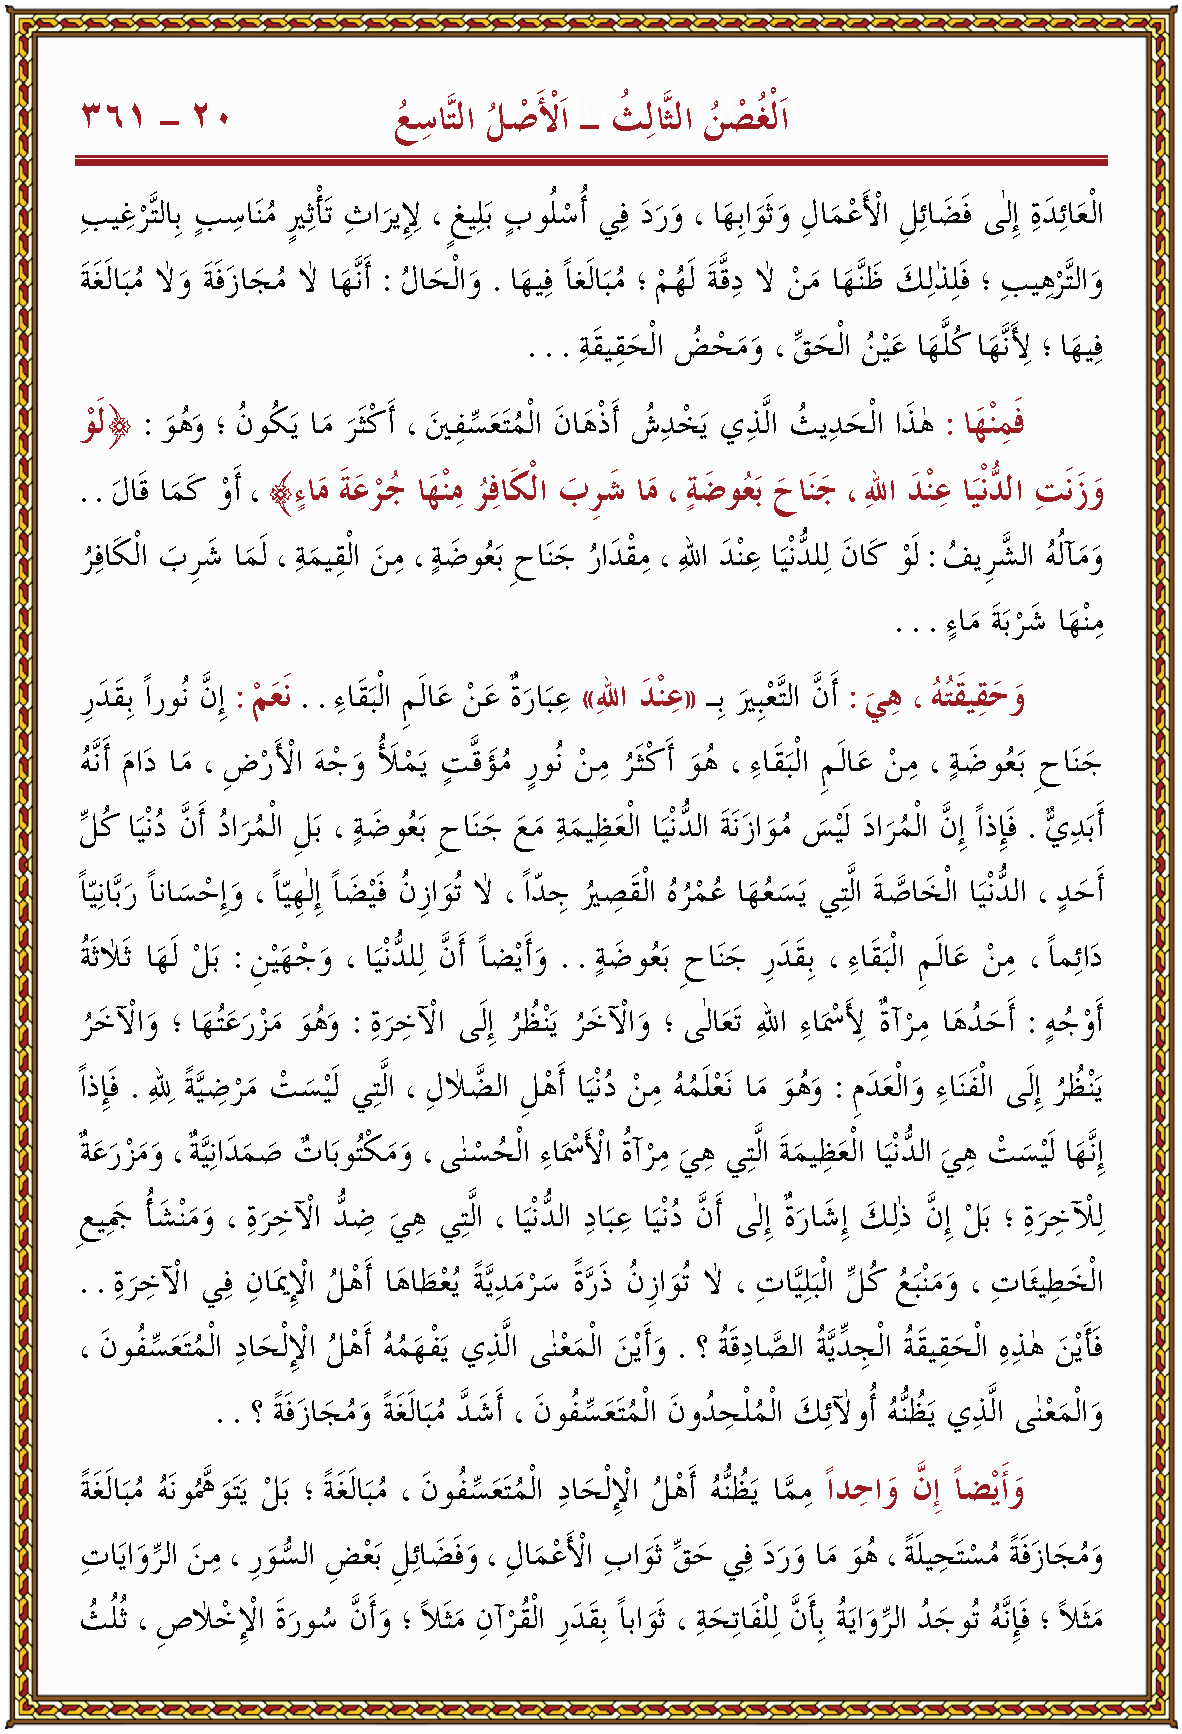 اَلْغُصْنُ الثَّالِثُ ــ اَلْأَصْلُ التَّاسِعُ ٢٠ ــ ٣٦١
الْعَائِدَةِ إِلٰى فَضَائِلِ الْأَعْمَالِ وَثَوَابِهَا ، وَرَدَ فِي أُسْلُوبٍ بَلِيغٍ ، لِإِيرَاثِ تَأْثِيرٍ مُنَاسِبٍ بِالتَّرْغِيبِ
وَالتَّرْهِيبِ ؛ فَلِذٰلِكَ ظَنَّهَا مَنْ لَا دِقَّةَ لَهُمْ ؛ مُبَالَغاً فِيهَا . وَالْحَالُ : أَنَّهَا لَا مُجَازَفَةَ وَلَا مُبَالَغَةَ
فِيهَا ؛ لِأَنَّهَا كُلَّهَا عَيْنُ الْحَقِّ ، وَمَحْضُ الْحَقِيقَةِ . . .
فَمِنْهَا : هٰذَا الْحَدِيثُ الَّذِي يَخْدِشُ أَذْهَانَ الْمُتَعَسِّفِينَ ، أَكْثَرَ مَا يَكُونُ ؛ وَهُوَ : ﴿لَوْ
وَزَنَتِ الدُّنْيَا عِنْدَ اللهِ ، جَنَاحَ بَعُوضَةٍ ، مَا شَرِبَ الْكَافِرُ مِنْهَا جُرْعَةَ مَاءٍ﴾ ، أَوْ كَمَا قَالَ . .
وَمَآلُهُ الشَّرِيفُ : لَوْ كَانَ لِلدُّنْيَا عِنْدَ اللهِ ، مِقْدَارُ جَنَاحِ بَعُوضَةٍ ، مِنَ الْقِيمَةِ ، لَمَا شَرِبَ الْكَافِرُ
مِنْهَا شَرْبَةَ مَاءٍ . . .
وَحَقِيقَتُهُ ، هِيَ : أَنَّ التَّعْبِيرَ بِـ «عِنْدَ اللهِ» عِبَارَةٌ عَنْ عَالَمِ الْبَقَاءِ . . نَعَمْ : إِنَّ نُوراً بِقَدَرِ
جَنَاحِ بَعُوضَةٍ ، مِنْ عَالَمِ الْبَقَاءِ ، هُوَ أَكْثَرُ مِنْ نُورٍ مُؤَقَّتٍ يَمْلَأُ وَجْهَ الْأَرْضِ ، مَا دَامَ أَنَّهُ
أَبَدِيٌّ . فَإِذاً إِنَّ الْمُرَادَ لَيْسَ مُوَازَنَةَ الدُّنْيَا الْعَظِيمَةِ مَعَ جَنَاحِ بَعُوضَةٍ ، بَلِ الْمُرَادُ أَنَّ دُنْيَا كُلِّ
أَحَدٍ ، الدُّنْيَا الْخَاصَّةَ الَّتِي يَسَعُهَا عُمْرُهُ الْقَصِيرُ جِدّاً ، لَا تُوَازِنُ فَيْضاً إِلٰهِيّاً ، وَإِحْسَاناً رَبَّانِيّاً
دَائِماً ، مِنْ عَالَمِ الْبَقَاءِ ، بِقَدَرِ جَنَاحِ بَعُوضَةٍ . . وَأَيْضاً أَنَّ لِلدُّنْيَا ، وَجْهَيْنِ : بَلْ لَهَا ثَلَاثَةُ
أَوْجُهٍ : أَحَدُهَا مِرْآةٌ لِأَسْمَاءِ اللهِ تَعَالٰى ؛ وَالْآخَرُ يَنْظُرُ إِلَى الْآخِرَةِ : وَهُوَ مَزْرَعَتُهَا ؛ وَالْآخَرُ
يَنْظُرُ إِلَى الْفَنَاءِ وَالْعَدَمِ : وَهُوَ مَا نَعْلَمُهُ مِنْ دُنْيَا أَهْلِ الضَّلَالِ ، الَّتِي لَيْسَتْ مَرْضِيَّةً لِلهِ . فَإِذاً
إِنَّهَا لَيْسَتْ هِيَ الدُّنْيَا الْعَظِيمَةَ الَّتِي هِيَ مِرْآةُ الْأَسْمَاءِ الْحُسْنٰى ، وَمَكْتُوبَاتٌ صَمَدَانِيَّةٌ ، وَمَزْرَعَةٌ
لِلْآخِرَةِ ؛ بَلْ إِنَّ ذٰلِكَ إِشَارَةٌ إِلٰى أَنَّ دُنْيَا عِبَادِ الدُّنْيَا ، الَّتِي هِيَ ضِدُّ الْآخِرَةِ ، وَمَنْشَأُ جَمِيعِ
الْخَطِيئَاتِ ، وَمَنْبَعُ كُلِّ الْبَلِيَّاتِ ، لَا تُوَازِنُ ذَرَّةً سَرْمَدِيَّةً يُعْطَاهَا أَهْلُ الْإِيمَانِ فِي الْآخِرَةِ . .
فَأَيْنَ هٰذِهِ الْحَقِيقَةُ الْجِدِّيَّةُ الصَّادِقَةُ ؟ . وَأَيْنَ الْمَعْنٰى الَّذِي يَفْهَمُهُ أَهْلُ الْإِلْحَادِ الْمُتَعَسِّفُونَ ،
وَالْمَعْنٰى الَّذِي يَظُنُّهُ أُولَآئِكَ الْمُلْحِدُونَ الْمُتَعَسِّفُونَ ، أَشَدَّ مُبَالَغَةً وَمُجَازَفَةً ؟ . .
وَأَيْضاً إِنَّ وَاحِداً مِمَّا يَظُنُّهُ أَهْلُ الْإِلْحَادِ الْمُتَعَسِّفُونَ ، مُبَالَغَةً ؛ بَلْ يَتَوَهَّمُونَهُ مُبَالَغَةً
وَمُجَازَفَةً مُسْتَحِيلَةً ، هُوَ مَا وَرَدَ فِي حَقِّ ثَوَابِ الْأَعْمَالِ ، وَفَضَائِلِ بَعْضِ السُّوَرِ ، مِنَ الرِّوَايَاتِ
مَثَلاً ؛ فَإِنَّهُ تُوجَدُ الرِّوَايَةُ بِأَنَّ لِلْفَاتِحَةِ ، ثَوَاباً بِقَدَرِ الْقُرْآنِ مَثَلاً ؛ وَأَنَّ سُورَةَ الْإِخْلَاصِ ، ثُلُثُ